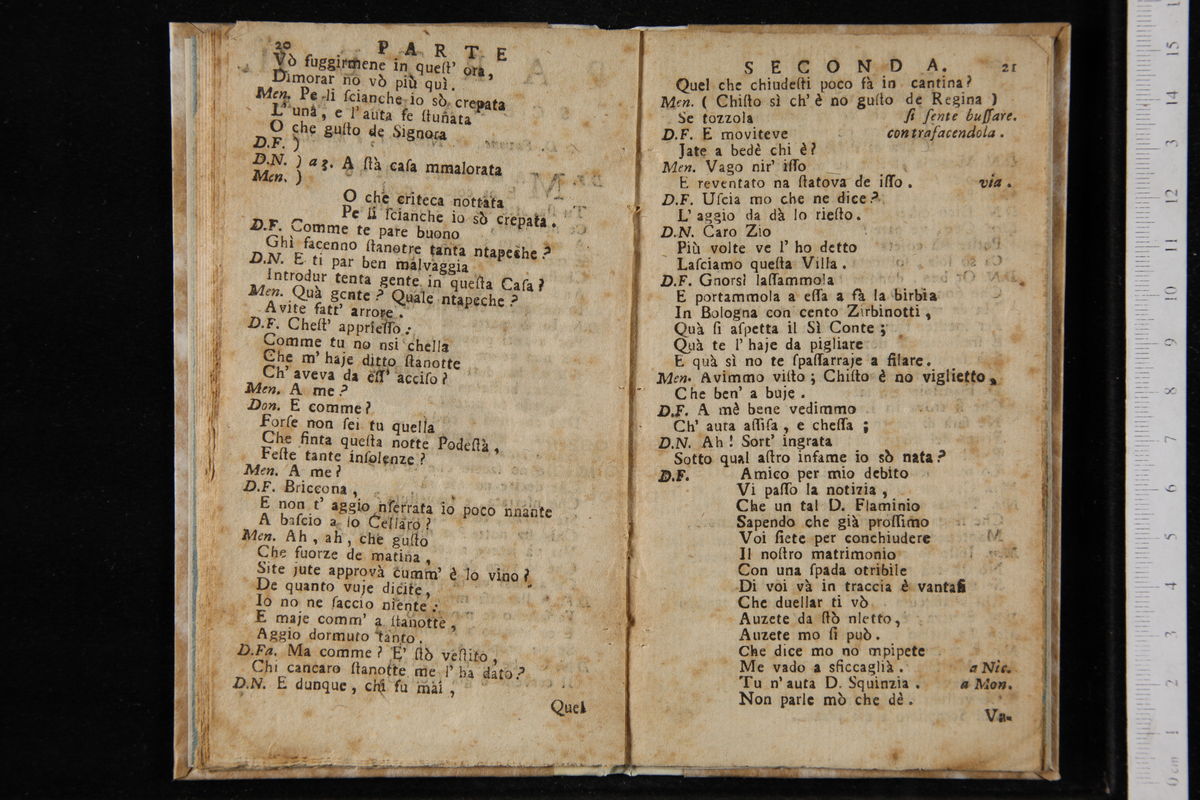 20 PARTE
Vò fuggirmene in queſt' ora,
Dimorar no vò più quì.
Men. Pe li ſcianche io sò crepata
L' una, e l'auta fe ſtunata
O che guſto de Signora
D.F. )
D.N. ) a 3. A ſtà caſa mmalorata
Men. )
O che criteca nottata
Pe li ſcianche io sò crepata.
D.F. Comme te pare buono
Ghì facenno ſtanotte tanta ntapeche?
D.N. E ti par ben malvaggia
Introdur tenta gente in queſta Caſa?
Men. Quà gente? Quale ntapeche?
Avite fatt' arrore.
D.F. Cheſt' apprieſſo:
Comme tu no nsi chella
Che m' haje ditto ſtanotte
Ch' aveva da eſſ' acciſo?
Men. A me?
Don. E comme?
Forſe non ſei tu quella
Che finta queſta notte Podeſtà,
Feſte tante inſolenze?
Men. A me?
D.F. Briccona,
E non t' aggio nſerrata io poco nnante
A baſcio a lo Cellaro?
Men. Ah, ah, che guſto
Che fuorze de matina,
Site jute approvà cumm' è lo vino?
De quanto vuje dicite,
Io no ne ſaccio niente:
E maje comm' a ſtanotte,
Aggio dormuto tanto.
D.Fa. Ma comme? E' ſtò veſtito,
Chi cancaro ſtanotte me l' ha dato?
D.N. E dunque, chi fu mai,
Quel
SECONDA. 21
Quel che chiudeſti poco fà in cantina?
Men. ( Chiſto sì ch' è no guſto de Regina )
Se tozzola ſi ſente buſſare.
D.F. E moviteve contrafacendola.
Jate a bedè chi è?
Men. Vago nir' iſſo
E reventato na ſtatova de iſſo. via.
D.F. Uſcia mo che ne dice?
L' aggio da dà lo rieſto.
D.N. Caro Zio
Più volte ve l' ho detto
Laſciamo queſta Villa.
D.F. Gnorsì laſſammola
E portammola a eſſa a fà la birbia
In Bologna con cento Zirbinotti,
Quà ſi aſpetta il Sì Conte;
Quà te l' haje da pigliare
E quà sì no te ſpaſſarraje a filare.
Men. Avimmo viſto; Chiſto è no viglietto,
Che ben' a buje.
D.F. A mè bene vedimmo
Ch' auta aſſiſa, e cheſſa;
D.N. Ah! Sort' ingrata
Sotto qual aſtro infame io sò nata?
D.F. Amico per mio debito
Vi paſſo la notizia,
Che un tal D. Flaminio
Sapendo che già proſſimo
Voi ſiete per conchiudere
Il noſtro matrimonio
Con una ſpada otribile
Di voi và in traccia è vantaſi
Che duellar ti vò
Auzete da ſtò nletto,
Auzete mo ſi può.
Che dice mo no mpipete
Me vado a sficcaglià. a Nic.
Tu n' auta D. Squinzia. a Mon.
Non parle mò che dè.
Va-